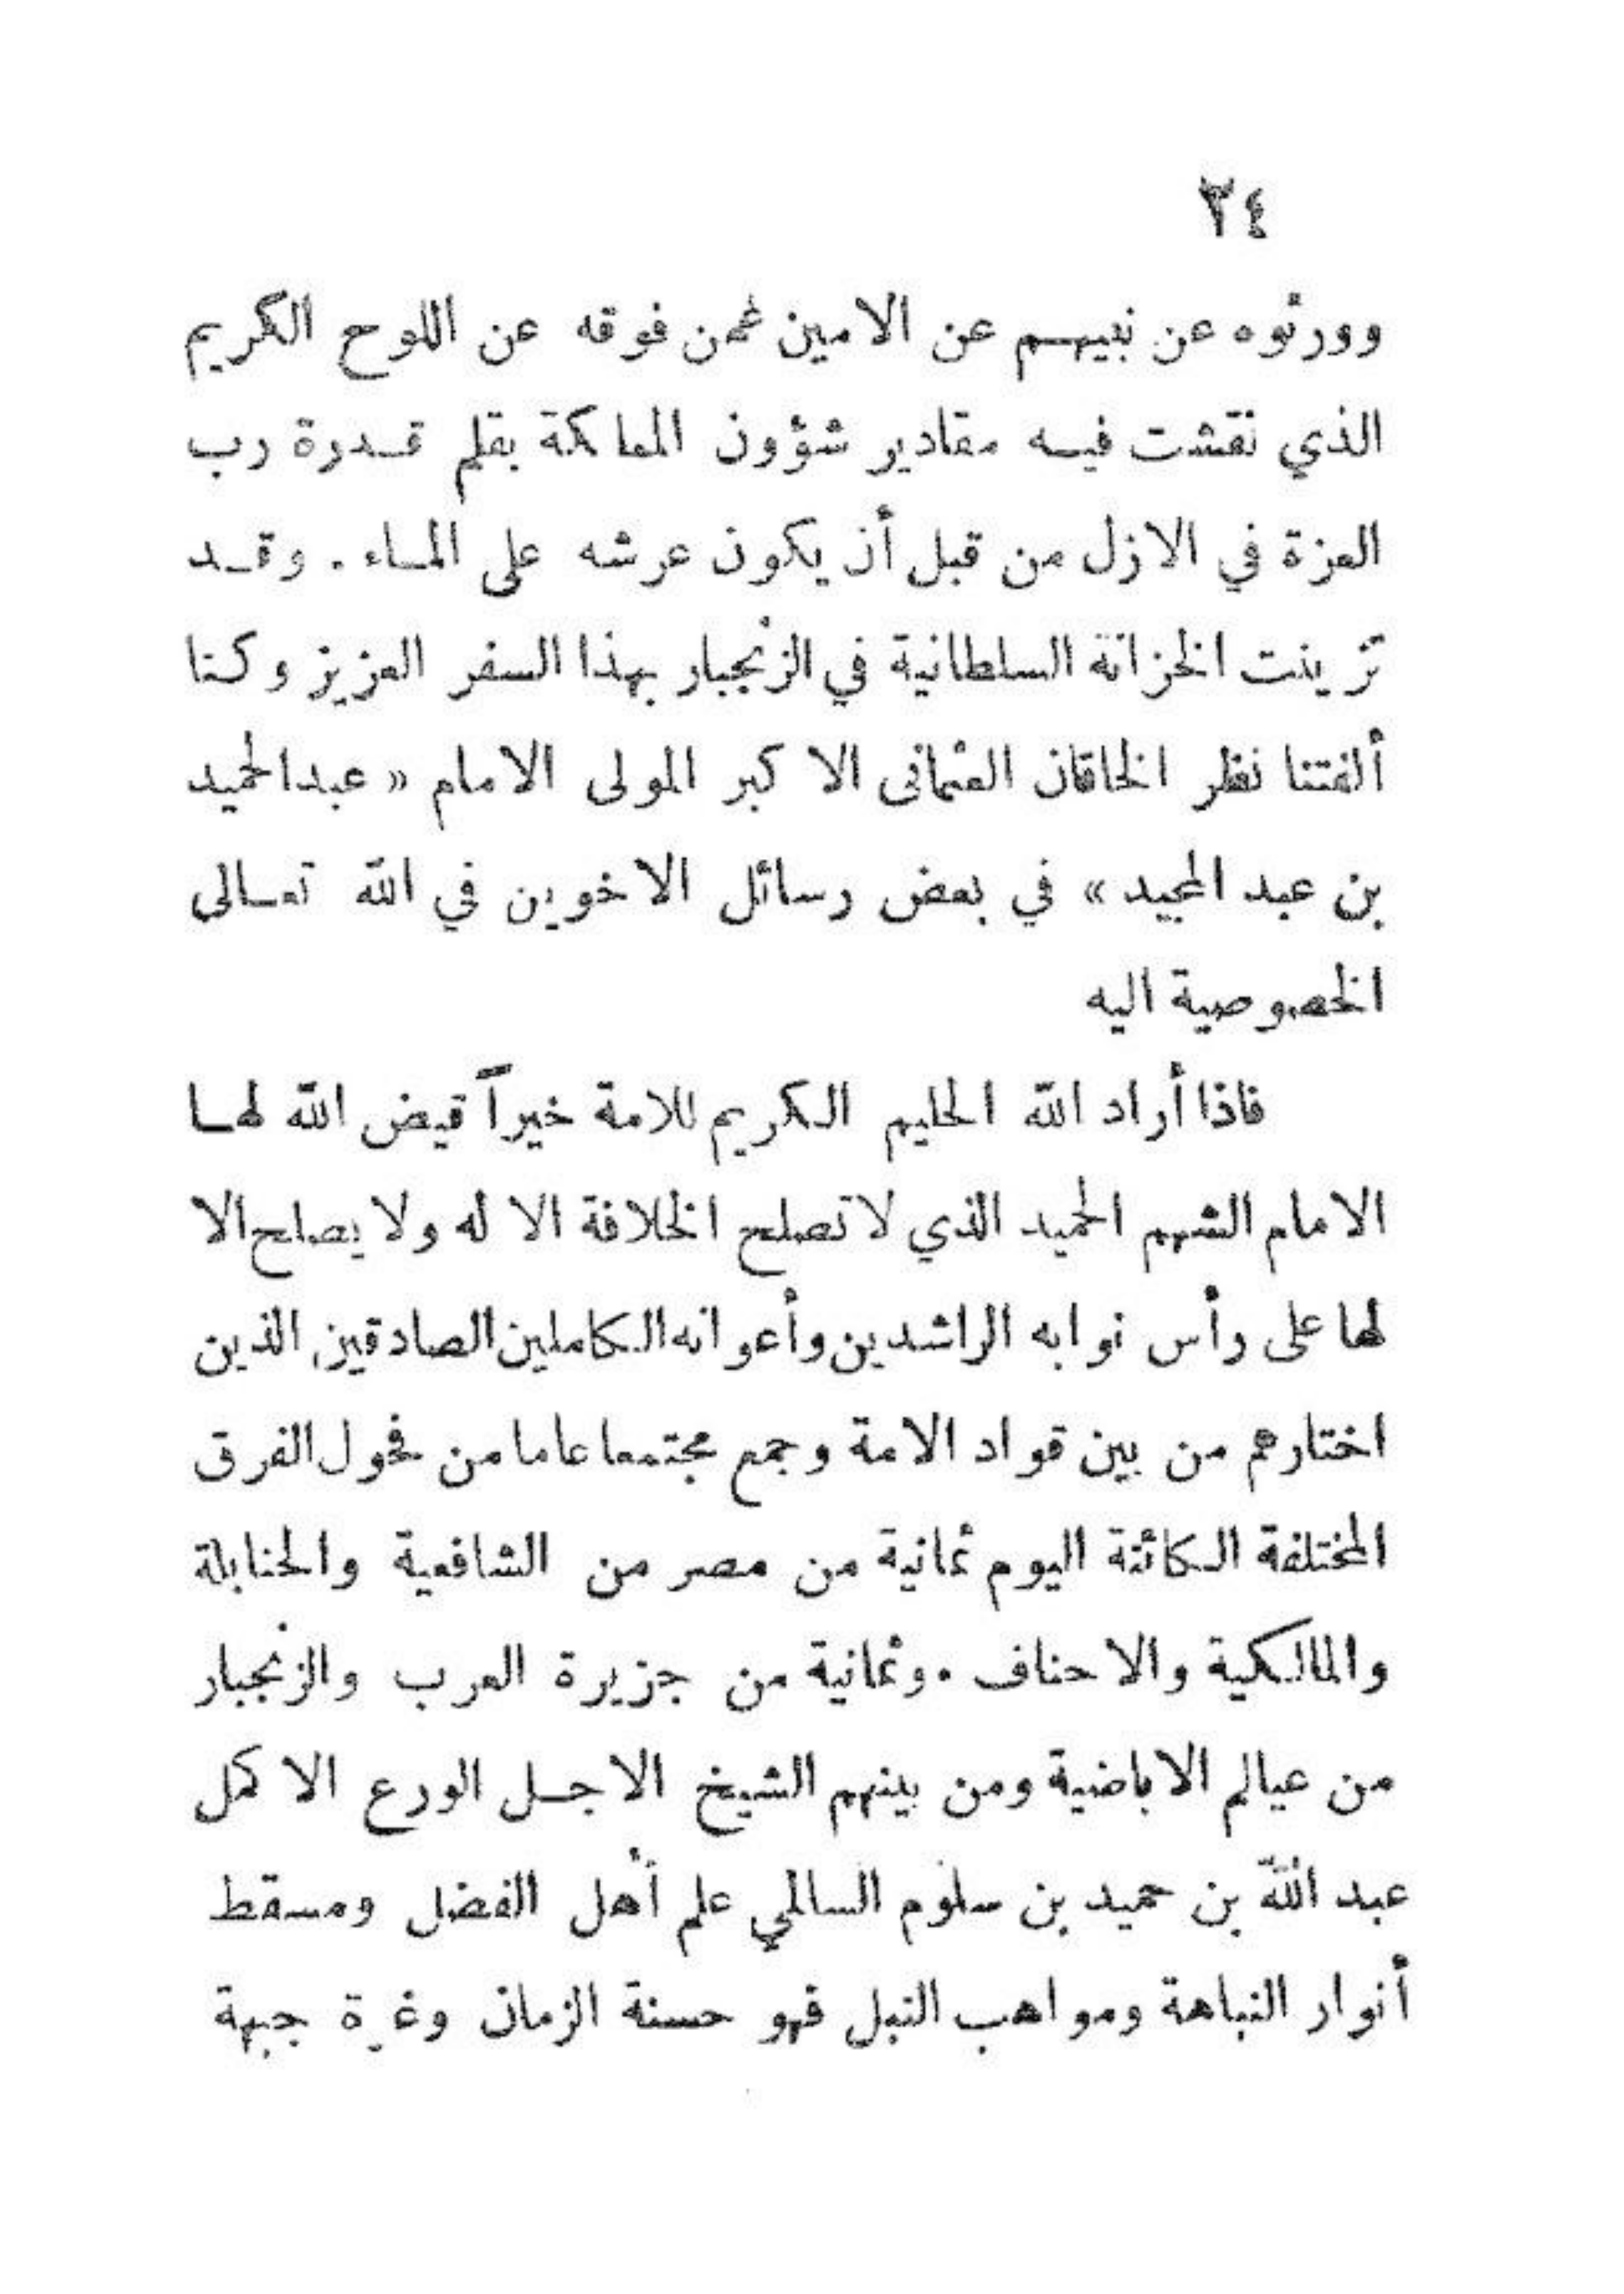 ٣٤
وورثوه عن نبيهم عن الامين عمن فوقه عن اللوح الكريم
الذي نقشت فيه مقادير شؤون المملكة بقلم قدرة رب
العزة في الازل من قبل أن يكون عرشه على الماء . وقد
تزينت الخزانة السلطانية في الزنجبار بهذا السفر العزيز وكنا
ألفتنا نظر الخاقان العثمانى الاكبر المولى الامام « عبدالحميد
بن عبد المجيد » في بعض رسائل الاخوين في الله تعالى
الخصوصية اليه
فاذا أراد الله الحليم الكريم للامة خيراً قيض الله لها
الامام الشهم الحميد الذي لا تصلح الخلافة الا له ولا يصلح الا
لها على رأس نوابه الراشدين وأعوانه الكاملين الصادقين الذين
اختارهم من بين قواد الامة وجمع مجتمعا عاما من فحول الفرق
المختلفة الكائنة اليوم ثمانية من مصر من الشافعية والحنابلة
والمالكية والاحناف . وثمانية من جزيرة العرب والزنجبار
من عيالم الاباضية ومن بينهم الشيخ الاجل الورع الاكمل
عبد الله بن حميد بن سلوم السالمي علم أهل الفضل ومسقط
أنوار النباهة ومواهب النبل فهو حسنة الزمان وغرة جبهة